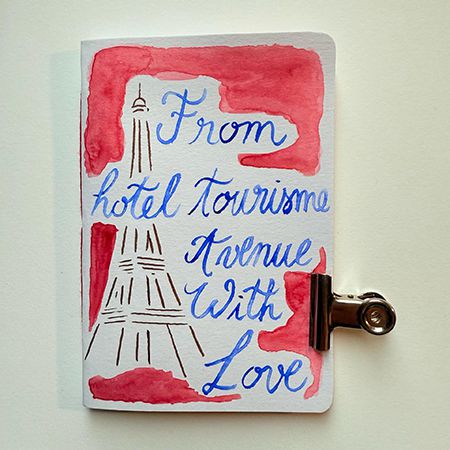 From
hotel tourisme
Avenue
With
Love